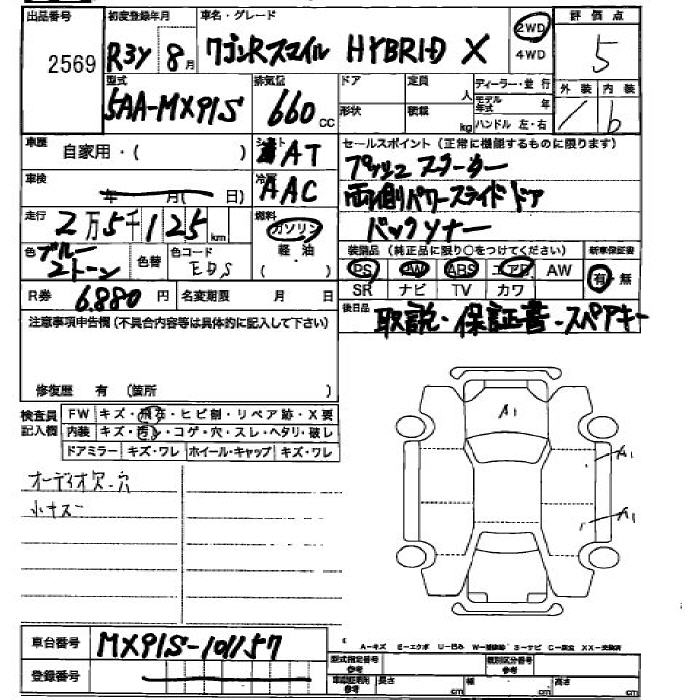 出品番号 初度登録年月 車名・グレード 評価点
2569 R3Y 8月 ワゴンRスマイル HYBRID X 2WD 4WD 5
型式 排気量 ドア 定員 人 ディーラー・並行 外装 内装
5AA-MX91S 660cc 形状 積載 kg モデル年式 年 ハンドル 左・右 b
車歴 自家用・( ) シフト AT セールスポイント(正常に機能するものに限ります)
プッシュスターター
車検 年 月( 日) 冷房 AAC 両側パワースライドドア
走行 2万5千125km 燃料 ガソリン 軽油 ( ・ ) バックソナー
色 ブルー2トーン 色替 色コード EDS 装備品(純正品に限り○をつけてください) 新車保証書
PS AW ABS エアB AW 有・無
SR ナビ TV カワ
R券 6,880円 名変期限 月 日 後日品 取説・保証書・スペアキー
注意事項申告欄(不具合内容等は具体的に記入して下さい)
修復歴 有 (箇所 )
検査員記入欄 FW キズ・飛石・ヒビ割・リペア跡・X要
内装 キズ・汚れ・コゲ・穴・スレ・ヘタリ・破レ
ドアミラー キズ・ワレ ホイール・キャップ キズ・ワレ
A1
A1
A1
オーディオ欠・穴
小キズ
車台番号 MX91S-101157
A-キズ E-エクボ U-凹み
登録番号 型式指定番号 参考 類別区分番号 参考
参考 長さ cm 幅 cm 高さ cm